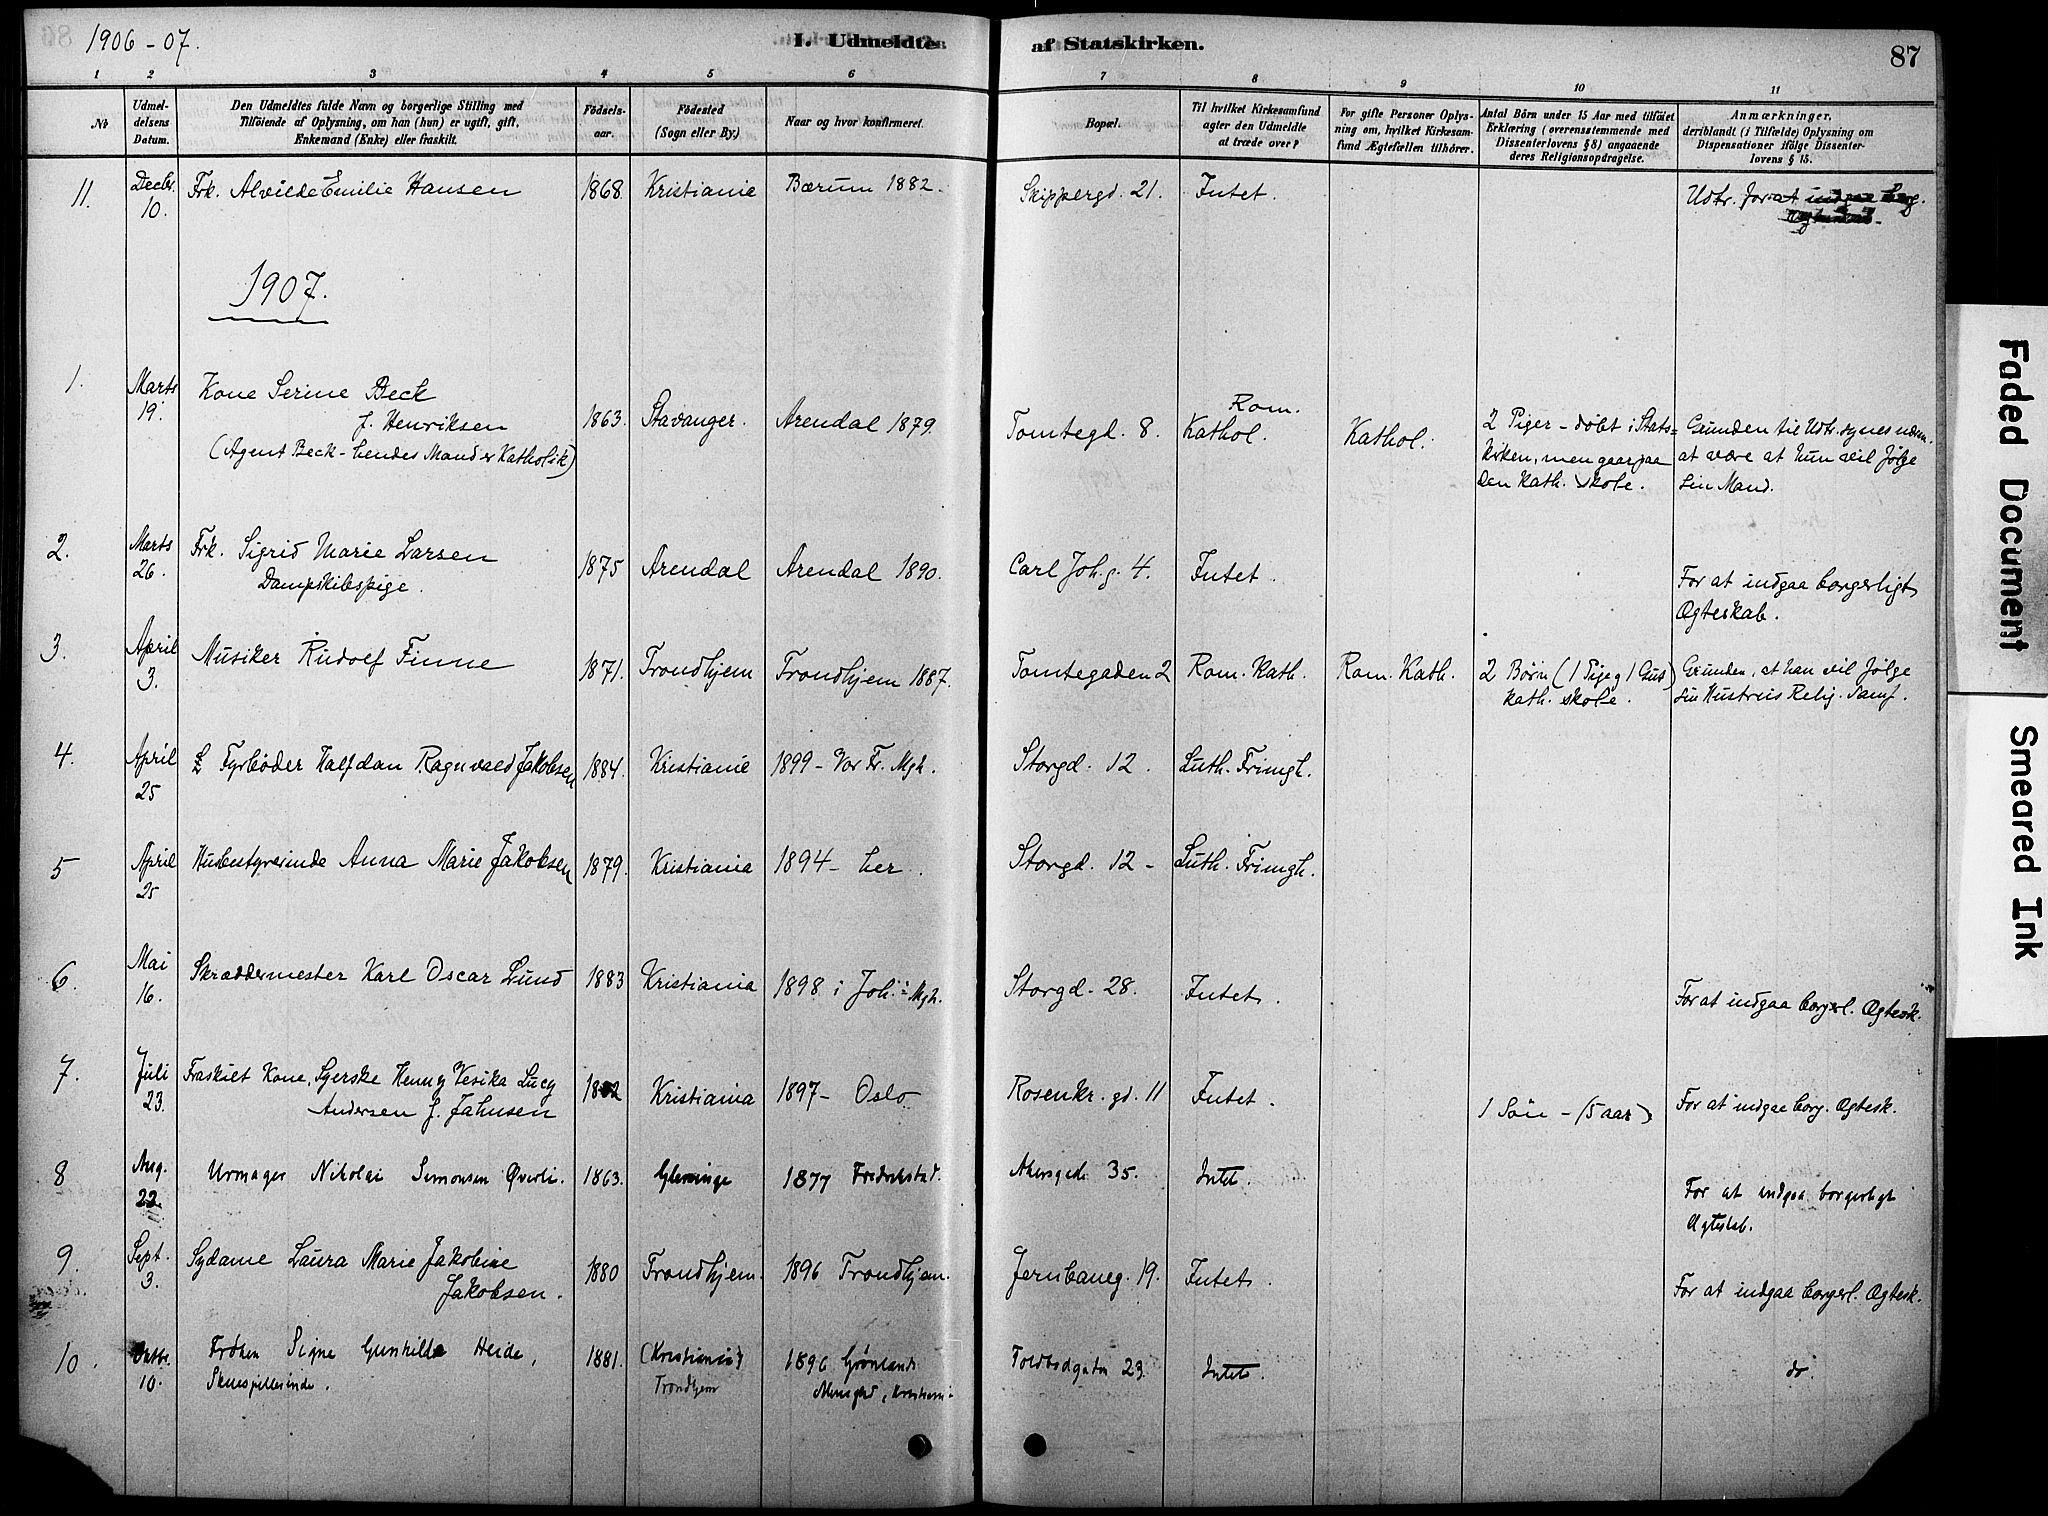 1906-07.
I. Udmeldte af Statskirken.
87
1 2 3 4 5 6 7 8 9 10 11
No
Udmel-
delsens
Datum.
Den Udmeldtes fulde Navn og borgerlige Stilling med
Tilföiende af Oplysning, om han (hun) er ugift, gift,
Enkemand (Enke) eller fraskilt.
Födsels-
aar.
Födested
(Sogn eller By.)
Naar og hvor konfirmeret.
Bopæl.
Til hvilket Kirkesamfund
agter den Udmeldte
at træde over?
For gifte Personer Oplys-
ning om, hvilket Kirkesam-
fund Ægtefællen tilhörer.
Antal Börn under 15 Aar med tilföiet
Erklæring (overensstemmende med
Dissenterlovens § 8) angaaende
deres Religionsopdragelse.
Anmærkninger,
deriblandt (i Tilfælde) Oplysning om
Dispensationer ifölge Dissenter-
lovens § 15.
11. Decbr. 10. Frk. Alvilde Emilie Hansen 1868. Kristiania Bærum 1882. Skippergd. 21. Intet. Udtr. for at indgaa borg.
Ægteskab.
1907.
1. Marts 19. Kone Serine Beck
f. Henriksen
(Agent Beck - hendes Mand er Katholik)
1863. Stavanger. Arendal 1879. Tomtegd. 8. Rom.
Kathol. Kathol.
2 Piger - døbt i Stats=
kirken, men gaar paa
den kath. skole.
Grunden til Udtr. synes
at være at hun vil følge
sin Mand.
2. Marts 26. Frk. Sigrid Marie Larsen
Dampskibspige.
1875 Arendal Arendal 1890. Carl Joh. g. 4. Intet.
For at indgaa borgerligt
Ægteskab.
3. April 3. Musiker Rudolf Finne 1871. Trondhjem Trondhjem 1887. Tomtegaden 2 Rom. Kath. Rom. Kath.
2 Børn (1 Pige, 1 Gut)
kath. skole.
Grunden, at han vil følge
sin Hustrus Relig. Samf.
4. April 25 Fyrbøder Halfdan Ragnvald Jakobsen 1884. Kristiania 1899 - Vor Fr. Mgh. Storgd. 12. Luth. Frimgh.
5 April 25 Husbestyrerinde Anna Marie Jakobsen 1879. Kristiania 1894 - her. Storgd. 12 - Luth. Frimgh.
6. Mai 16. Skræddermester Karl Oscar Lund 1883 Kristiania 1898 i Joh. Mgh. Storgd. 28. Intet. For at indgaa borgerl. Ægtesk.
7. Juli 23. Fraskilt Kone, Syerske Henny Vesika Lucy
Andersen f. Jahnsen
1882 Kristiania 1897 - Oslo Rosenkr. gd. 11 Intet. 1 Søn - (5 aar) For at indgaa borg. Ægtesk.
8 Aug. 22. Urmager Nikolai Simonsen Øverli. 1863. Glemminge 1877 Fredrikstad. Akersgd. 35. Intet.
For at indgaa borgerligt
Ægteskab.
9. Sept. 3. Sydame Laura Marie Jakobine
Jakobsen.
1880 Trondhjem. 1896 Trondhjem. Jernbaneg. 19. Intet. For at indgaa borgerl. Ægtesk.
10. Oktbr. 10. Frøken Signe Gunhilde Heide,
Skuespillerinde.
1881. (Kristiania)
Trondhjem
1896 Grønlands
Menighed, Kristiania
Toldbodgaten 23. Intet. do
Faded Document
Smeared Ink